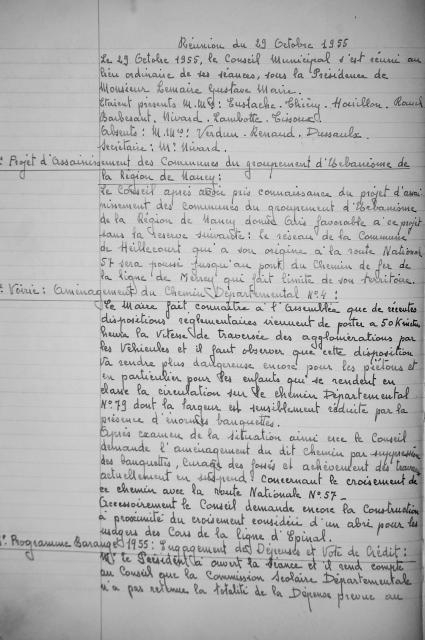 Réunion du 29 Octobre 1955
Le 29 Octobre 1955, le Conseil Municipal s'est réuni au
lieu ordinaire de ses séances, sous la Présidence de
Monsieur Lemaire Gustave Maire.
Etaient présents M.M. Eustache. Thiéry. Houillon. Rauch
Barbesant. Nivard. Lambotte.
Absents: M.M. Verdun. Renaud. Dussaulx.
Secrétaire: Mr Nivard.
Projet d'Assainissement des Communes du groupement d'Urbanisme de
la Région de Nancy:
Le Conseil après avoir pris connaissance du projet d'assai
nissement des communes du groupement d'Urbanisme
de la Région de Nancy donne avis favorable à ce projet
sous la réserve suivante: le réseau de la Commune
de Heillecourt qui a son origine à la route National
57 sera poussé jusqu'au pont du Chemin de fer de
la ligne de Merrey qui fait limite de son territoire.
Voirie: Aménagement du Chemin Départemental N°4:
Le Maire fait connaître à l'Assemblée que de récentes
dispositions réglementaires viennent de porter à 50 Km
heure la vitesse de traversée des agglomérations par
les véhicules et il faut observer que cette disposition
va rendre plus dangereuse encore pour les piétons et
en particulier pour les enfants qui se rendent en
classe la circulation sur le chemin Départemental
N°79 dont la largeur est sensiblement réduite par la
présence d'énormes banquettes.
Après examen de la situation ainsi créée le Conseil
demande l'aménagement du dit chemin par suppression
des banquettes, curage des fossés et achèvement des travaux
actuellement en suspend concernant le croisement de
ce chemin avec la route Nationale N°57_
Accessoirement le Conseil demande encore la Construction
à proximité du croisement considéré d'un abri pour les
usagers des Cars de la ligne d'Epinal.
Programme Barangé 1955: Engagement des Dépenses et Vote de Crédit:
Mr le Président a ouvert la séance et il rend compte
au Conseil que la Commission Scolaire Départementale
n'a pas retenue la totalité de la Dépense prévue au